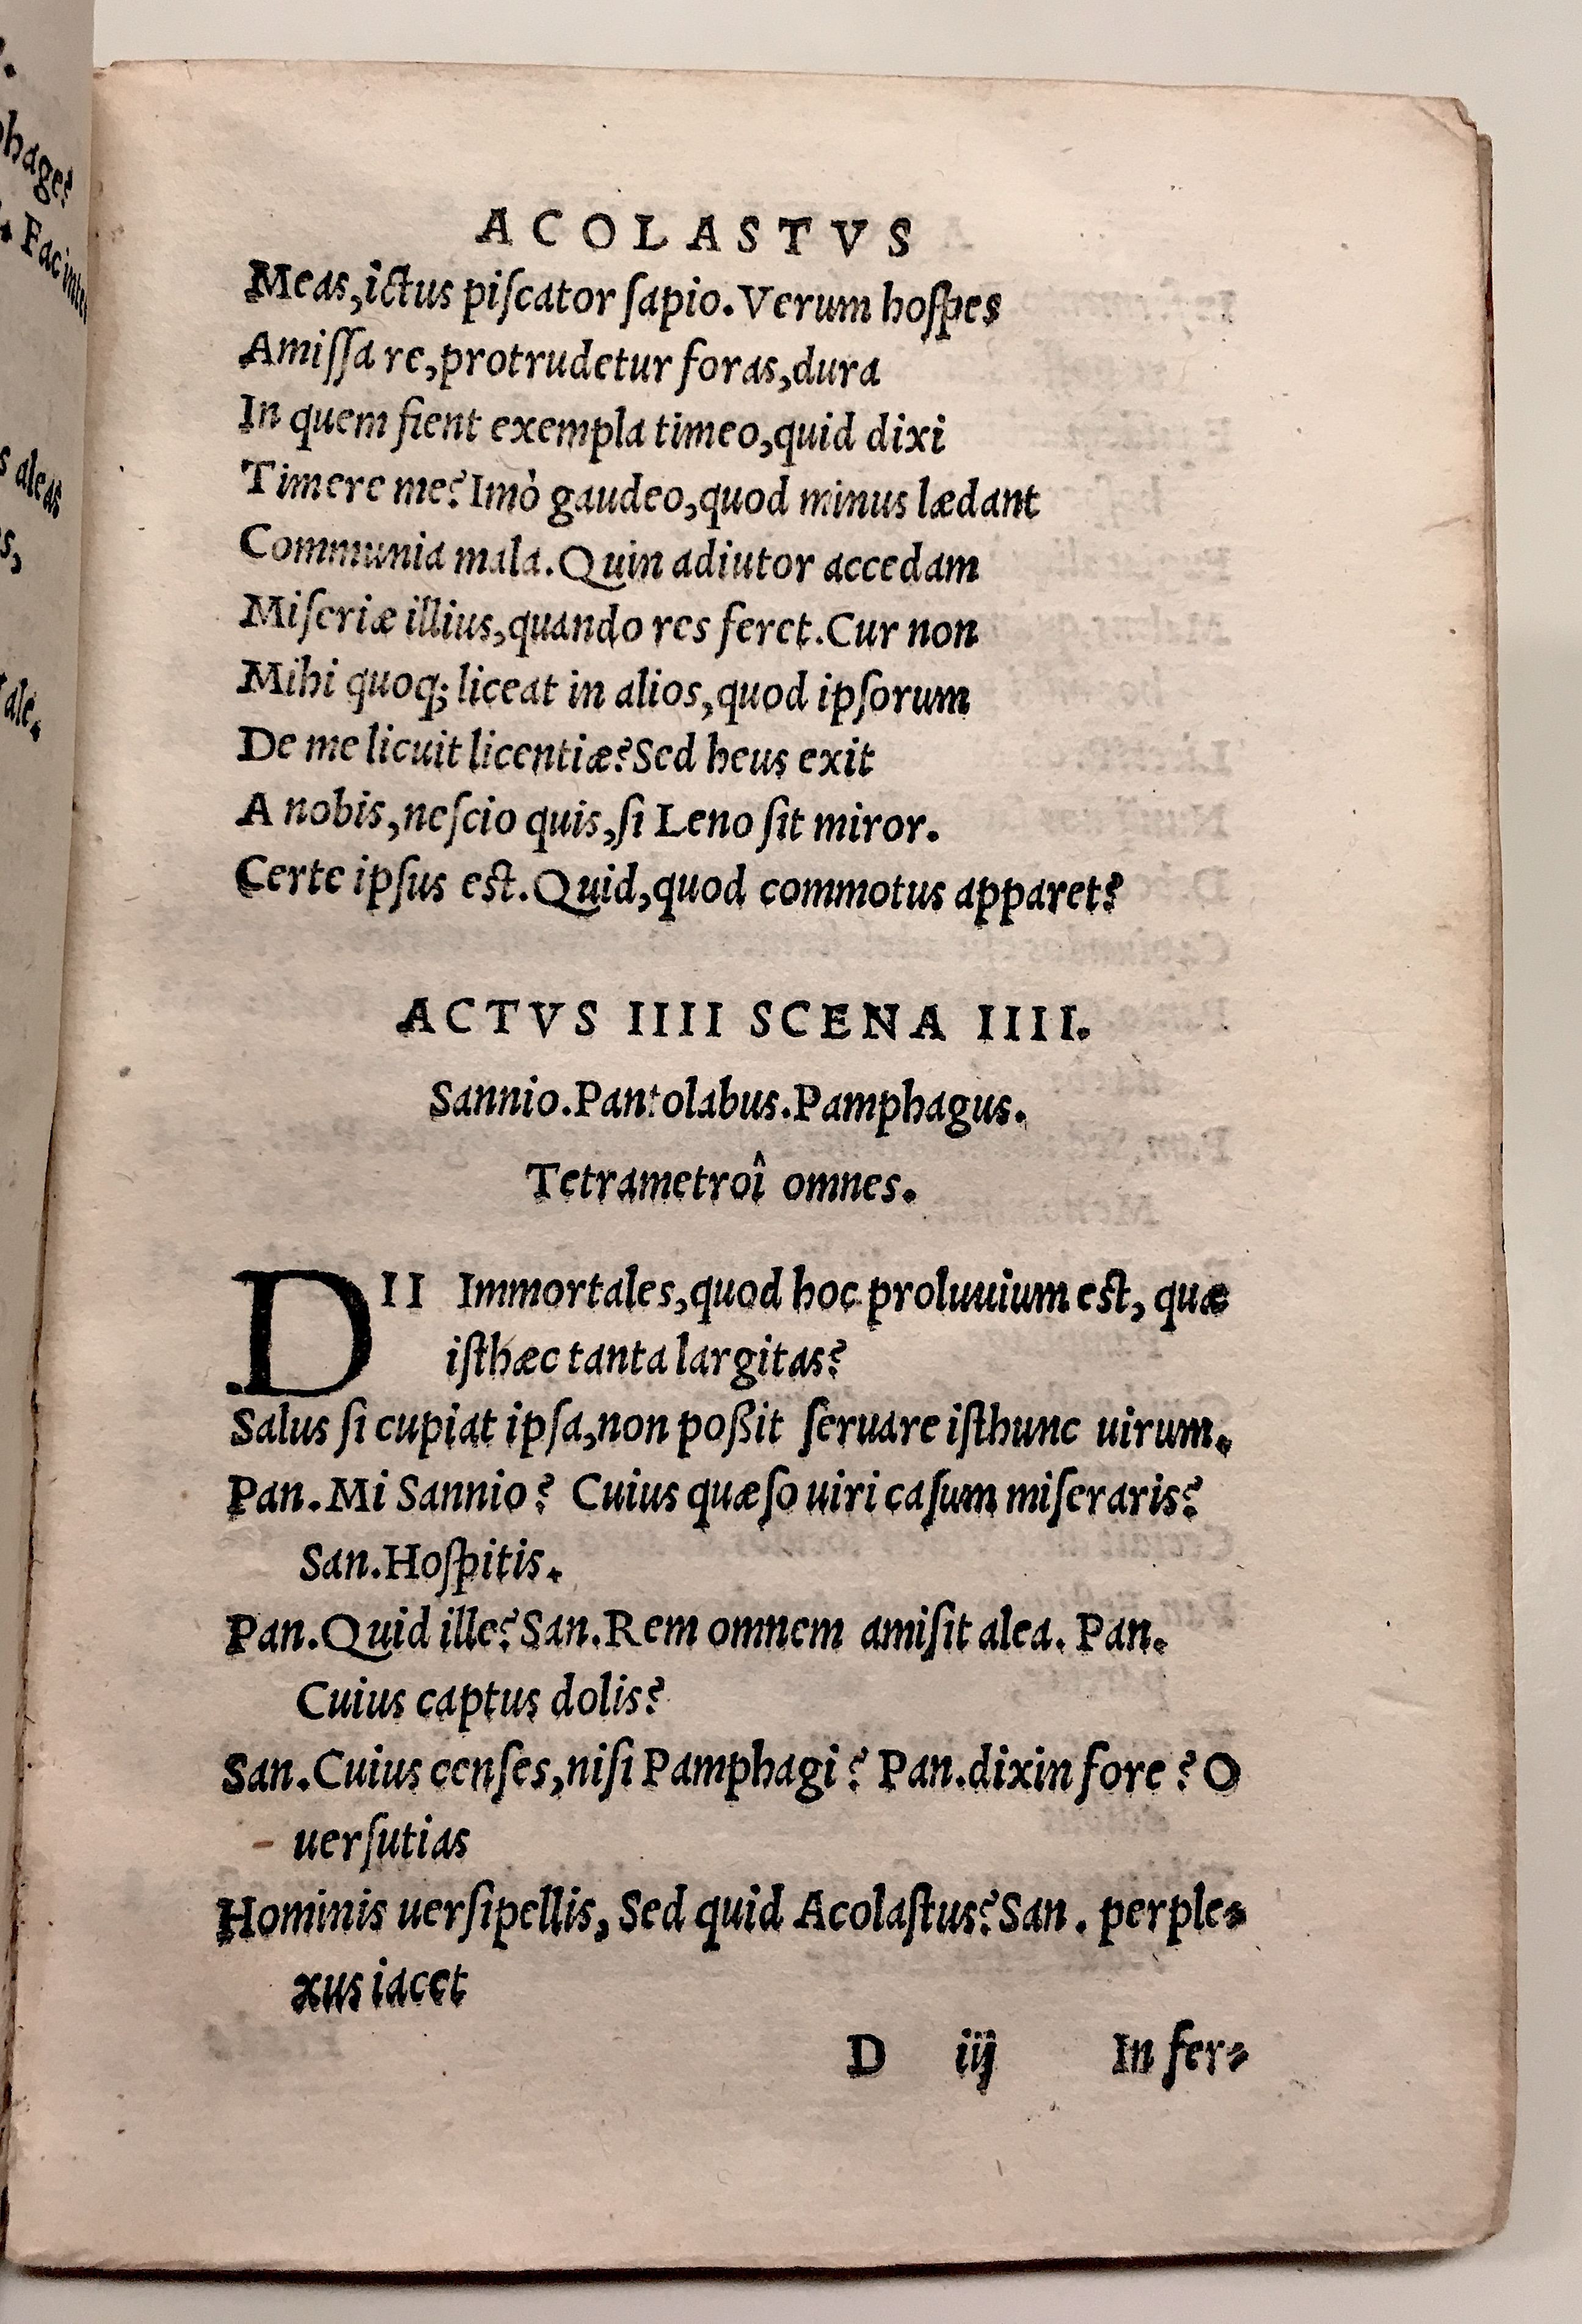 phage?
Fac
s aleas
ACOLASTVS
Meas,ictus piſcator ſapio.Verum hoſpes
Amiſſa re,protrudetur foras,dura
In quem fient exempla timeo,quid dixi
Timere me? Imò gaudeo,quod minus lædant
Communia mala.Quin adiutor accedam
Miſeriæ illius,quando res feret.Cur non
Mihi quoq; liceat in alios,quod ipſorum
De me licuit licentiæ?Sed heus exit
A nobis,neſcio quis,ſi Leno ſit miror.
Certe ipſus est.Quid,quod commotus apparet?
ACTVS IIII SCENA IIII.
Sannio.Pantolabus.Pamphagus.
Tetrametroî omnes.
DII Immortales,quod hoc proluuium est, quæ
iſthæc tanta largitas?
Salus ſi cupiat ipſa,non poßit ſeruare iſthunc uirum.
Pan.Mi Sannio? Cuius quæſo uiri caſum miſeraris?
San.Hoſpitis.
Pan.Quid ille?San.Rem omnem amiſit alea. Pan.
Cuius captus dolis?
San.Cuius cenſes,niſi Pamphagi? Pan.dixin fore? O
uerſutias
Hominis uerſipellis, Sed quid Acolaſtus?San. perple-
xus iacet
D iij In fer-